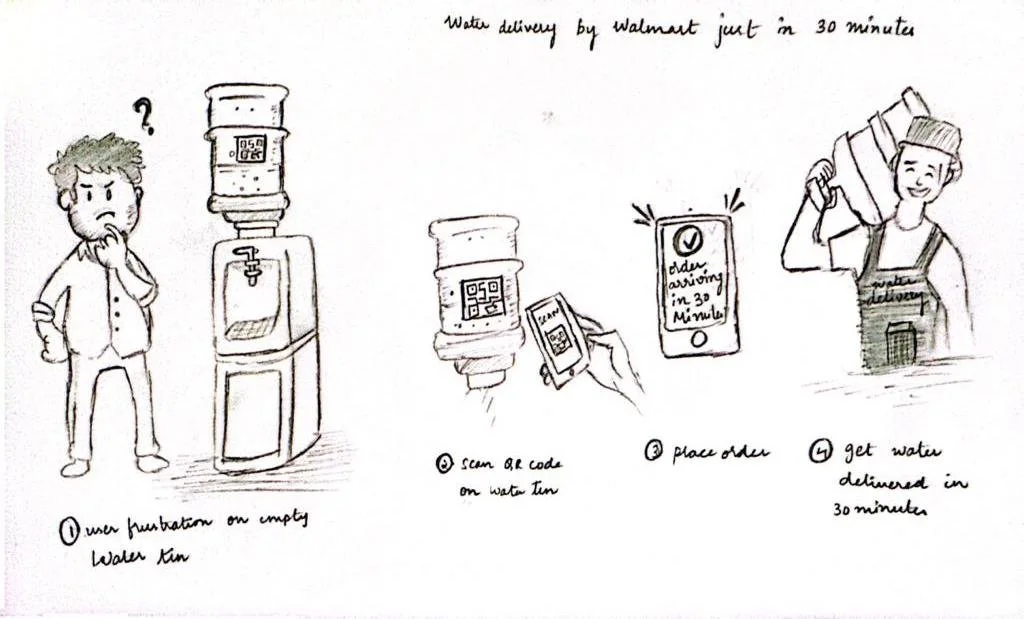 Water delivery by Walmart just in 30 minutes
?
SCAN
order
arriving
in 30
Minutes
water
delivery
① user frustration on empty
Water tin
② scan QR code
on water tin
③ place order
④ get water
delivered in
30 minutes